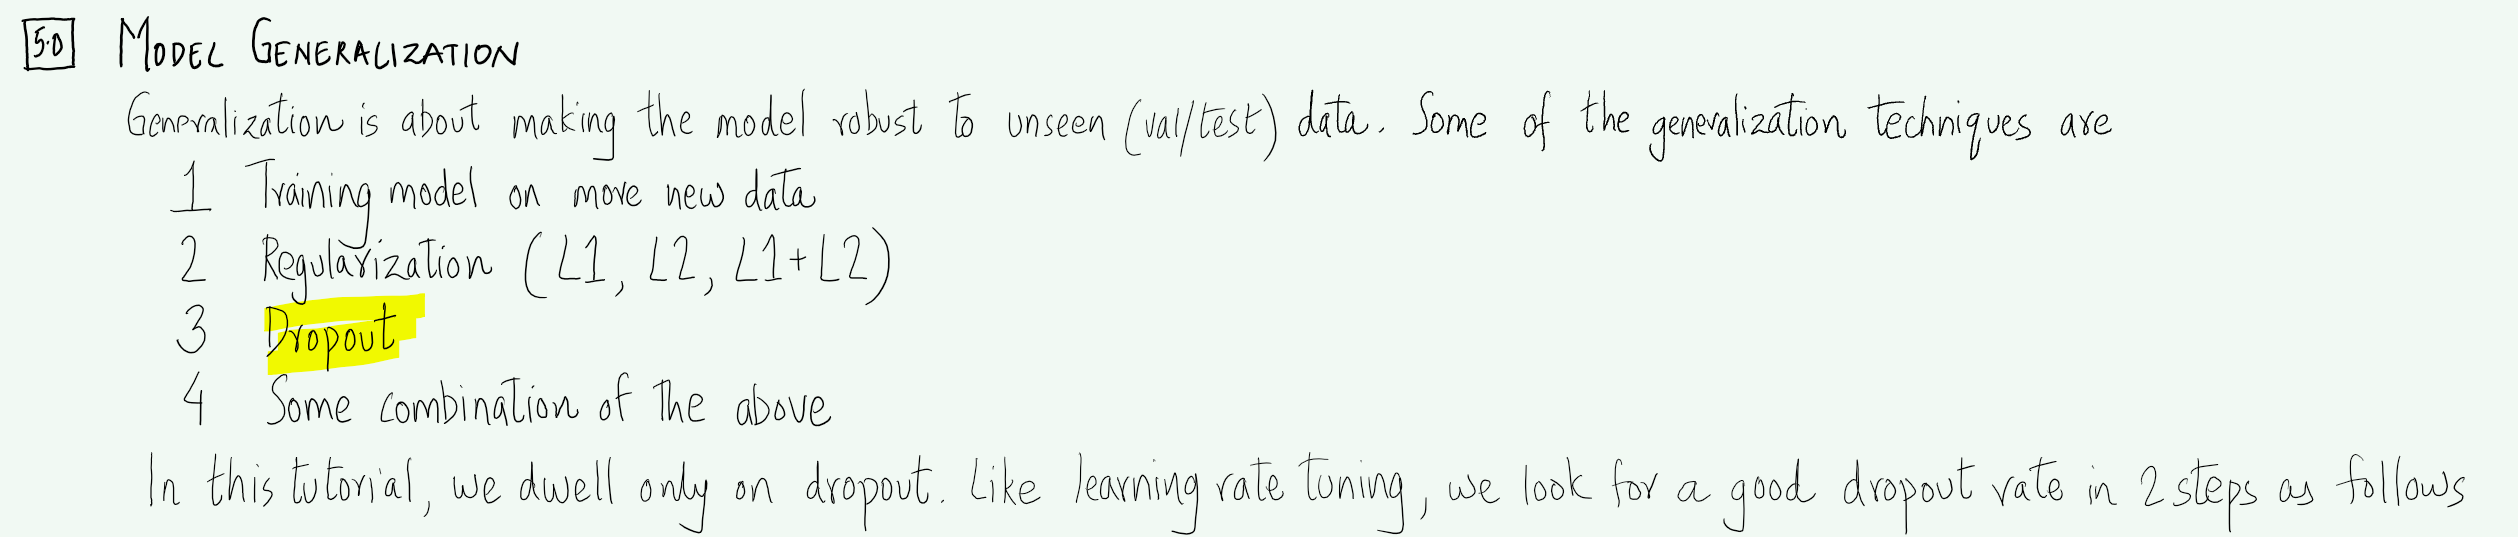 5.0 MODEL GENERALIZATION
Generalization is about making the model robust to unseen (val/test) data. Some of the generalization techniques are
1 Training model on more new data
2 Regularization (L1, L2, L1+L2)
3 Dropout
4 Some combination of the above
In this tutorial, we dwell only on dropout. Like learning rate tuning, we look for a good dropout rate in 2 steps as follows